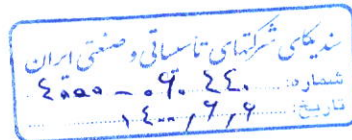 سندیکای شرکتهای تاسیساتی و صنعتی ایران
شماره: ۴۰۰۰ - ۰۹۰.۴۴۰
تاریخ: ۱۴۰۰,۶,۶